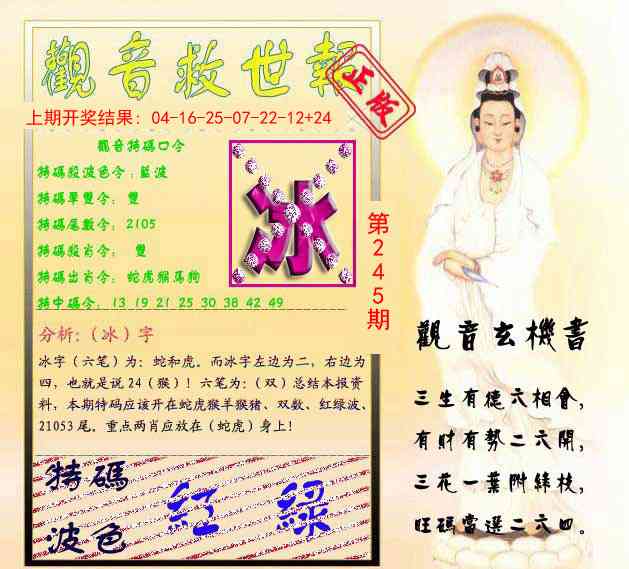 觀音救世報
正版
上期开奖结果：04-16-25-07-22-12+24
觀音特碼口令
特碼殺波色令：藍波
特碼單雙令： 雙
特碼尾數令： 2105
特碼殺肖令： 雙
特碼出肖令： 蛇虎猴馬狗
特中碼令： 13 19 21 25 30 38 42 49
冰
第245期
分析：（冰）字
冰字（六笔）为：蛇和虎。而冰字左边为二，右边为
四，也就是说24（猴）！六笔为：（双）总结本报资
料，本期特码应该开在蛇虎猴羊猴猪、双数、红绿波、
21053尾。重点两肖应放在（蛇虎）身上！
特碼
波色
紅 綠
觀音玄機書
三生有德六相會，
有財有勢二六開，
三花一葉附綠枝，
旺碼當選二六四。